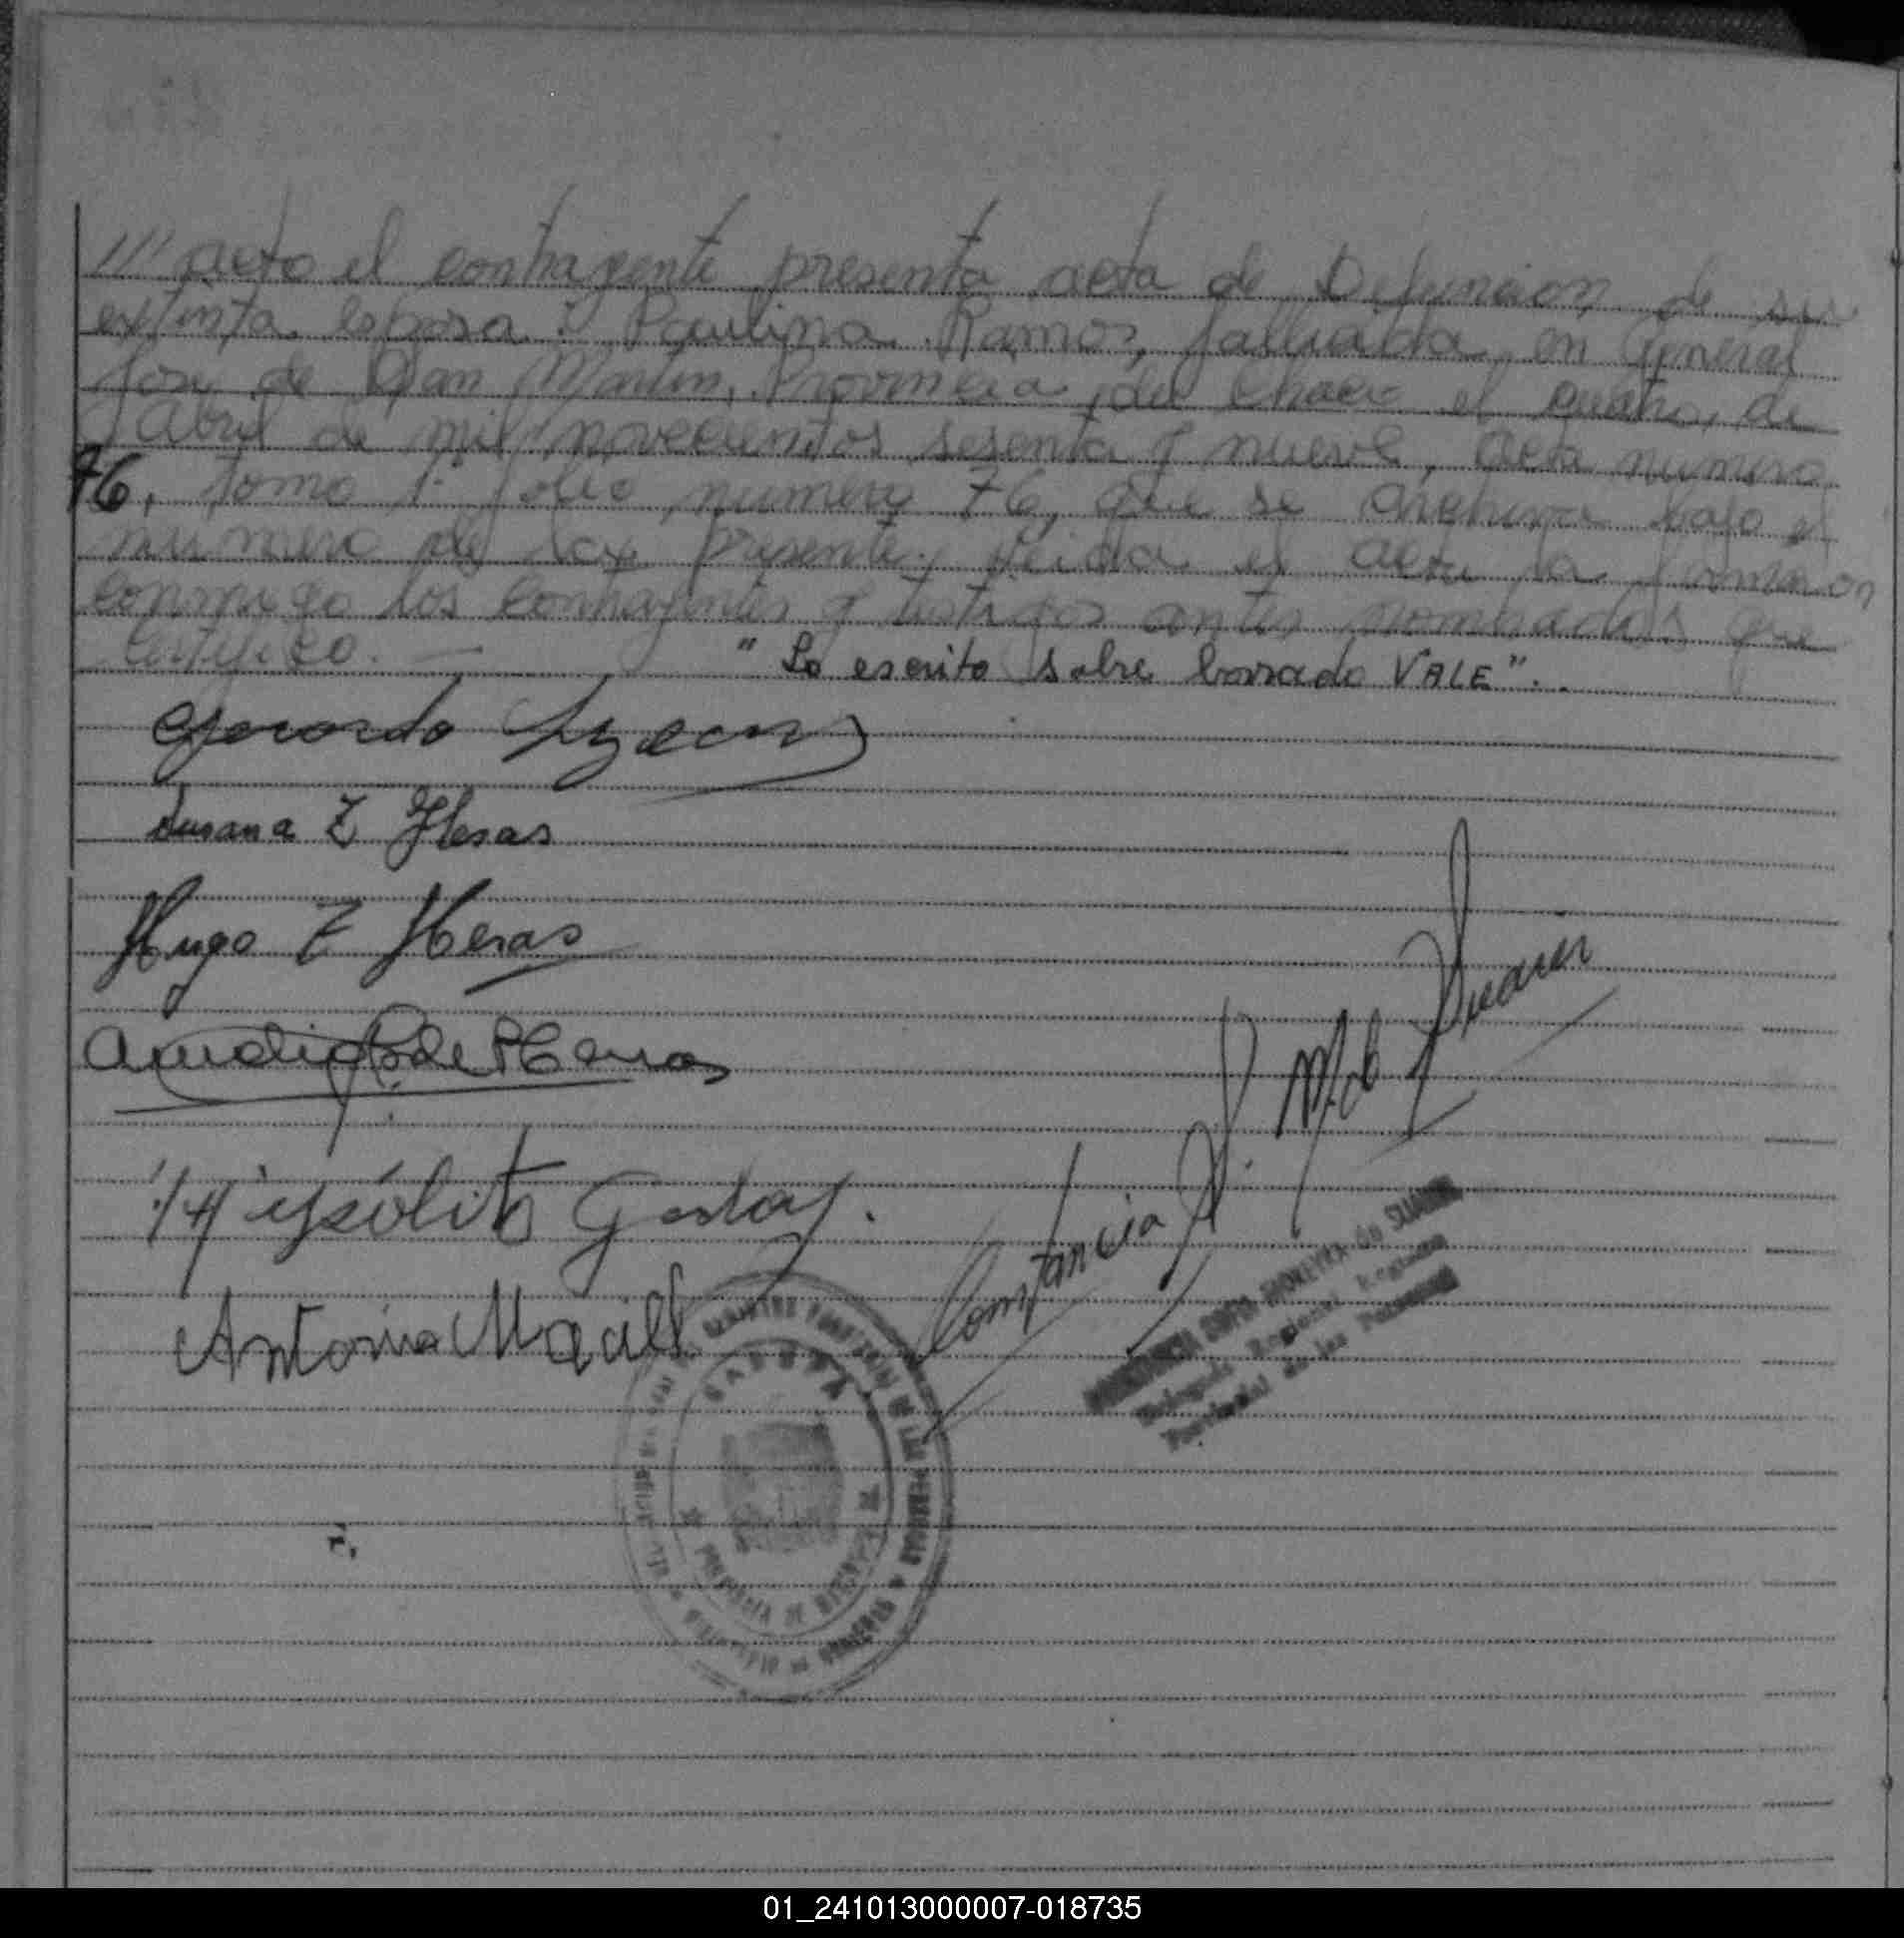 /// acto el contrayente presenta acta de Defuncion de su
extinta esposa: Paulina Ramos, fallecida en General
Jose de San Martin, Provincia del Chaco el cuatro de
Abril de mil novecientos sesenta y nueve, acta numero
76, tomo 1º folio numero 76, que se archiva bajo el
numero de la presente. Leida el acta la firman
conmigo los contrayentes y testigos antes nombrados que
certifico. — "Lo escrito sobre borrado VALE"..
Gerardo
Susana Z Heras
Hugo Z Heras
de Heras
Hipólito Godoy.
Antonia
Constancia S. M de Suarez
CONSTANCIA SOFIA de SUAREZ
Delegada Regional Registro
Provincial de las Personas
REGISTRO PROVINCIAL DE LAS PERSONAS